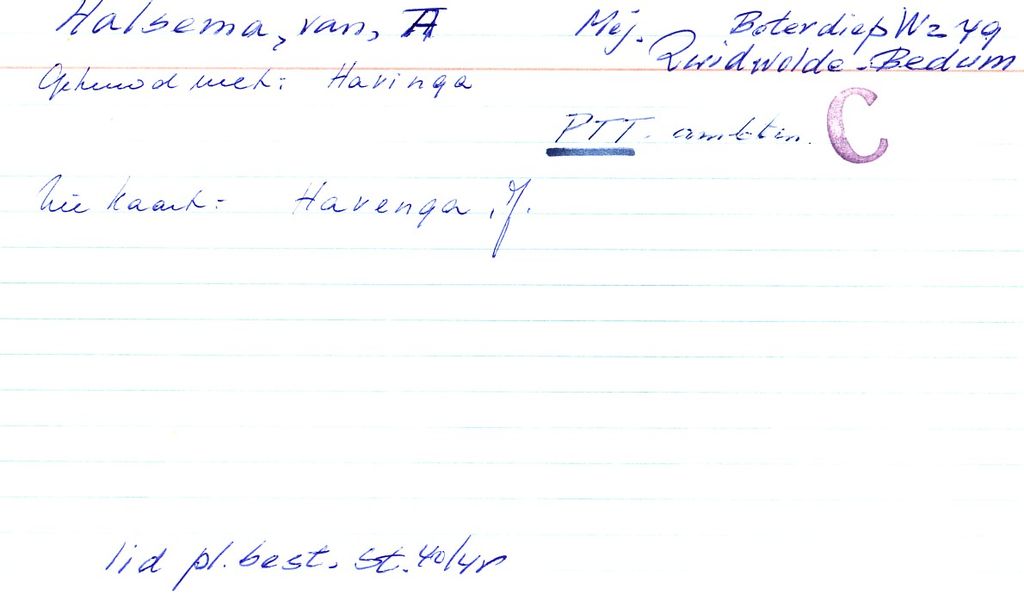 Halsema, van, A Mej. Boterdiep Wz 49
Zuidwolde-Bedum
Gehuwd met: Havinga
PTT-ambten. C
Zie kaart: Havenga, J.
lid pl. best. St. 40/45